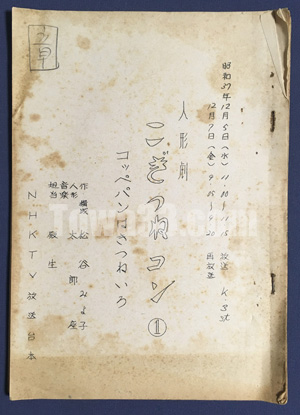 昭和37年12月5日(水) 11.10~11.15 放送 K-3st
12月7日(金) 9.15~9.20 再放送
人形劇
こぎつねコン ①
コッペパンはきつねいろ
作 構成 松谷みよ子
人形 太郎座
音楽
担当 殿生
NHKTV放送台本